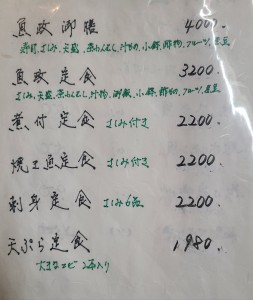 魚政御膳 4000.
さしみ、天盛、茶わんむし、汁物、小鉢、酢物、フルーツ、
魚政定食 3200.
さしみ、天盛、茶わんむし、汁物、御飯、小鉢、酢物、フルーツ、
煮付定食 さしみ付き 2200.
焼魚定食 さしみ付き 2200.
刺身定食 さしみ6品 2200.
天ぷら定食 1980.
大きなエビ2本入り